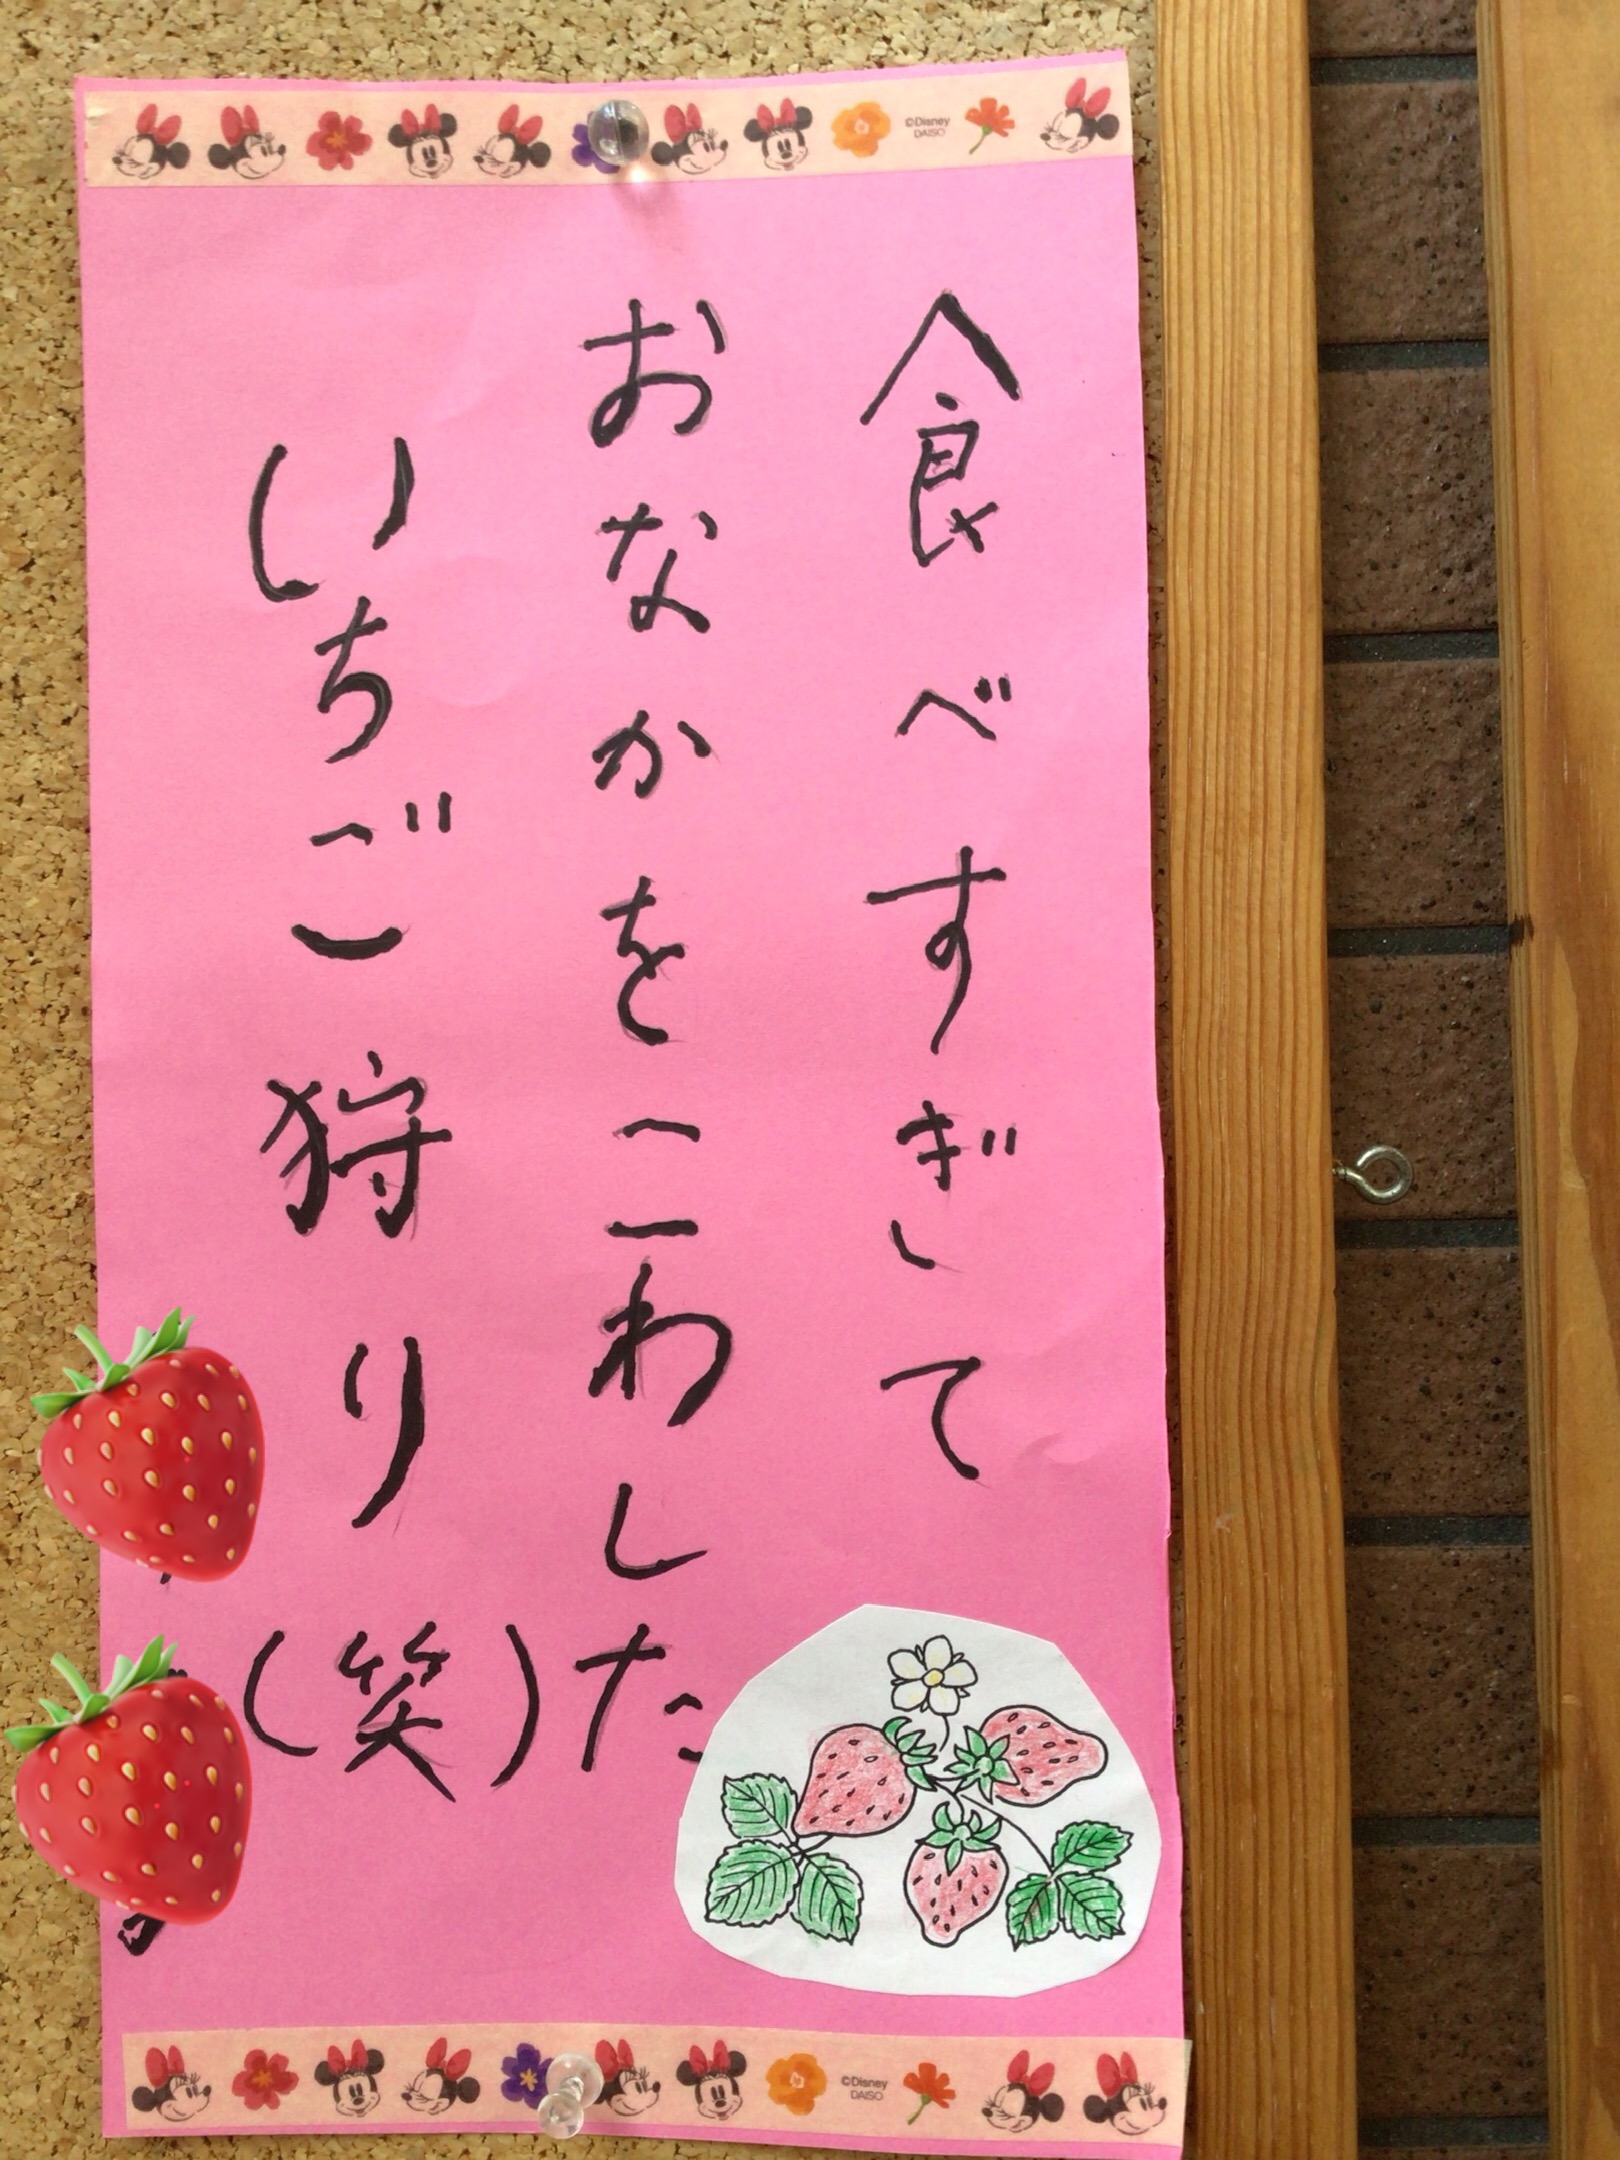 ©Disney
DAISO
食べすぎて
おなかをこわした
いちご狩り(笑)
©Disney
DAISO